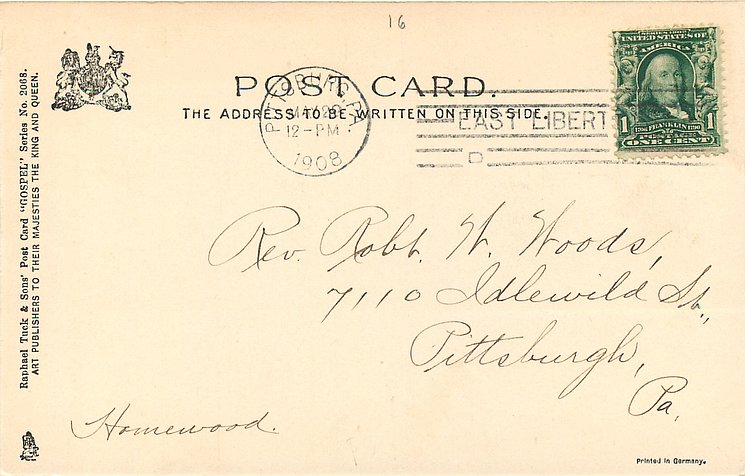 16
POST CARD.
THE ADDRESS TO BE WRITTEN ON THIS SIDE.
PITTSBURG, PA.
MAY
12-PM
1908
EAST LIBERT
D
SERIES 1902
UNITED STATES OF
AMERICA
1 1
1706 FRANKLIN 1790
POSTAGE
ONE CENT
Raphael Tuck & Sons' Post Card "GOSPEL" Series No. 2068.
ART PUBLISHERS TO THEIR MAJESTIES THE KING AND QUEEN.
Rev. Robt. W. Woods,
7110 Idlewild St.,
Pittsburgh,
Pa.
Homewood.
Printed in Germany.